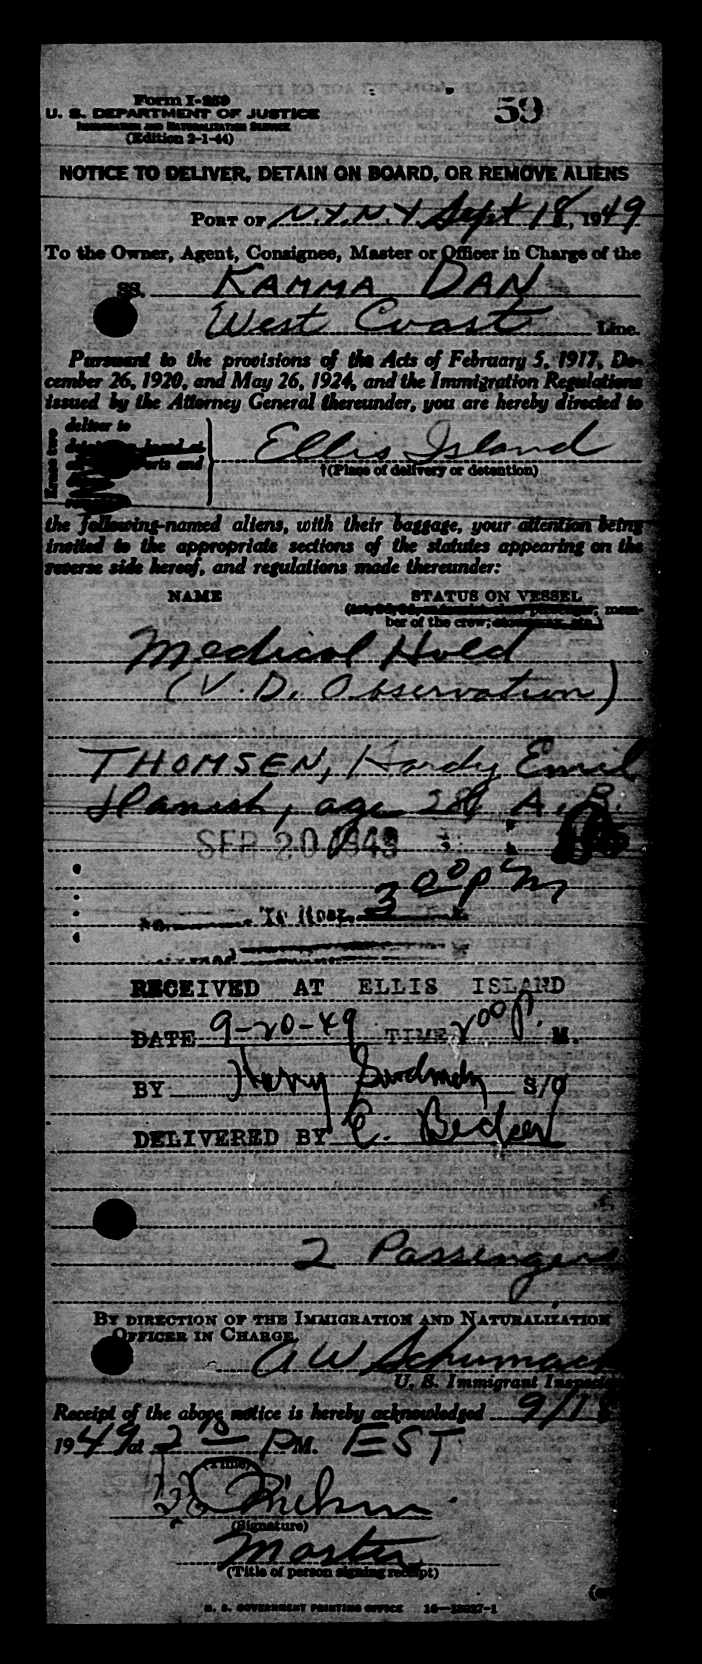 59
Form I-259
U. S. DEPARTMENT OF JUSTICE
IMMIGRATION AND NATURALIZATION SERVICE
(Edition 2-1-44)
NOTICE TO DELIVER, DETAIN ON BOARD, OR REMOVE ALIENS
PORT OF N.Y.N.Y. Sept 18, 1949
To the Owner, Agent, Consignee, Master or Officer in Charge of the
SS. KAMMA DAN
West Coast Line.
Pursuant to the provisions of the Acts of February 5, 1917, De-
cember 26, 1920, and May 26, 1924, and the Immigration Regulations
issued by the Attorney General thereunder, you are hereby directed to
deliver to
Ellis Island
†(Place of delivery or detention)
the following-named aliens, with their baggage, your attention being
invited to the appropriate sections of the statutes appearing on the
reverse side hereof, and regulations made thereunder:
NAME STATUS ON VESSEL
mem-
ber of the crew;
Medical Hold
(V. D. Observation)
THOMSEN, Hardy Emil
Danish, age 28, A. B.
SEP 20 1949
3 00 pm
RECEIVED AT ELLIS ISLAND
DATE 9-20-49 TIME 2 00 P. M.
BY Harry S/O
DELIVERED BY E.
2 Passengers
BY DIRECTION OF THE IMMIGRATION AND NATURALIZATION
OFFICER IN CHARGE.
A W Schumach
U. S. Immigrant Inspec
Receipt of the above notice is hereby acknowledged 9/18
1949 at 2 PM. EST
(Time)
(Signature)
Master
(Title of person signing receipt)
U. S. GOVERNMENT PRINTING OFFICE